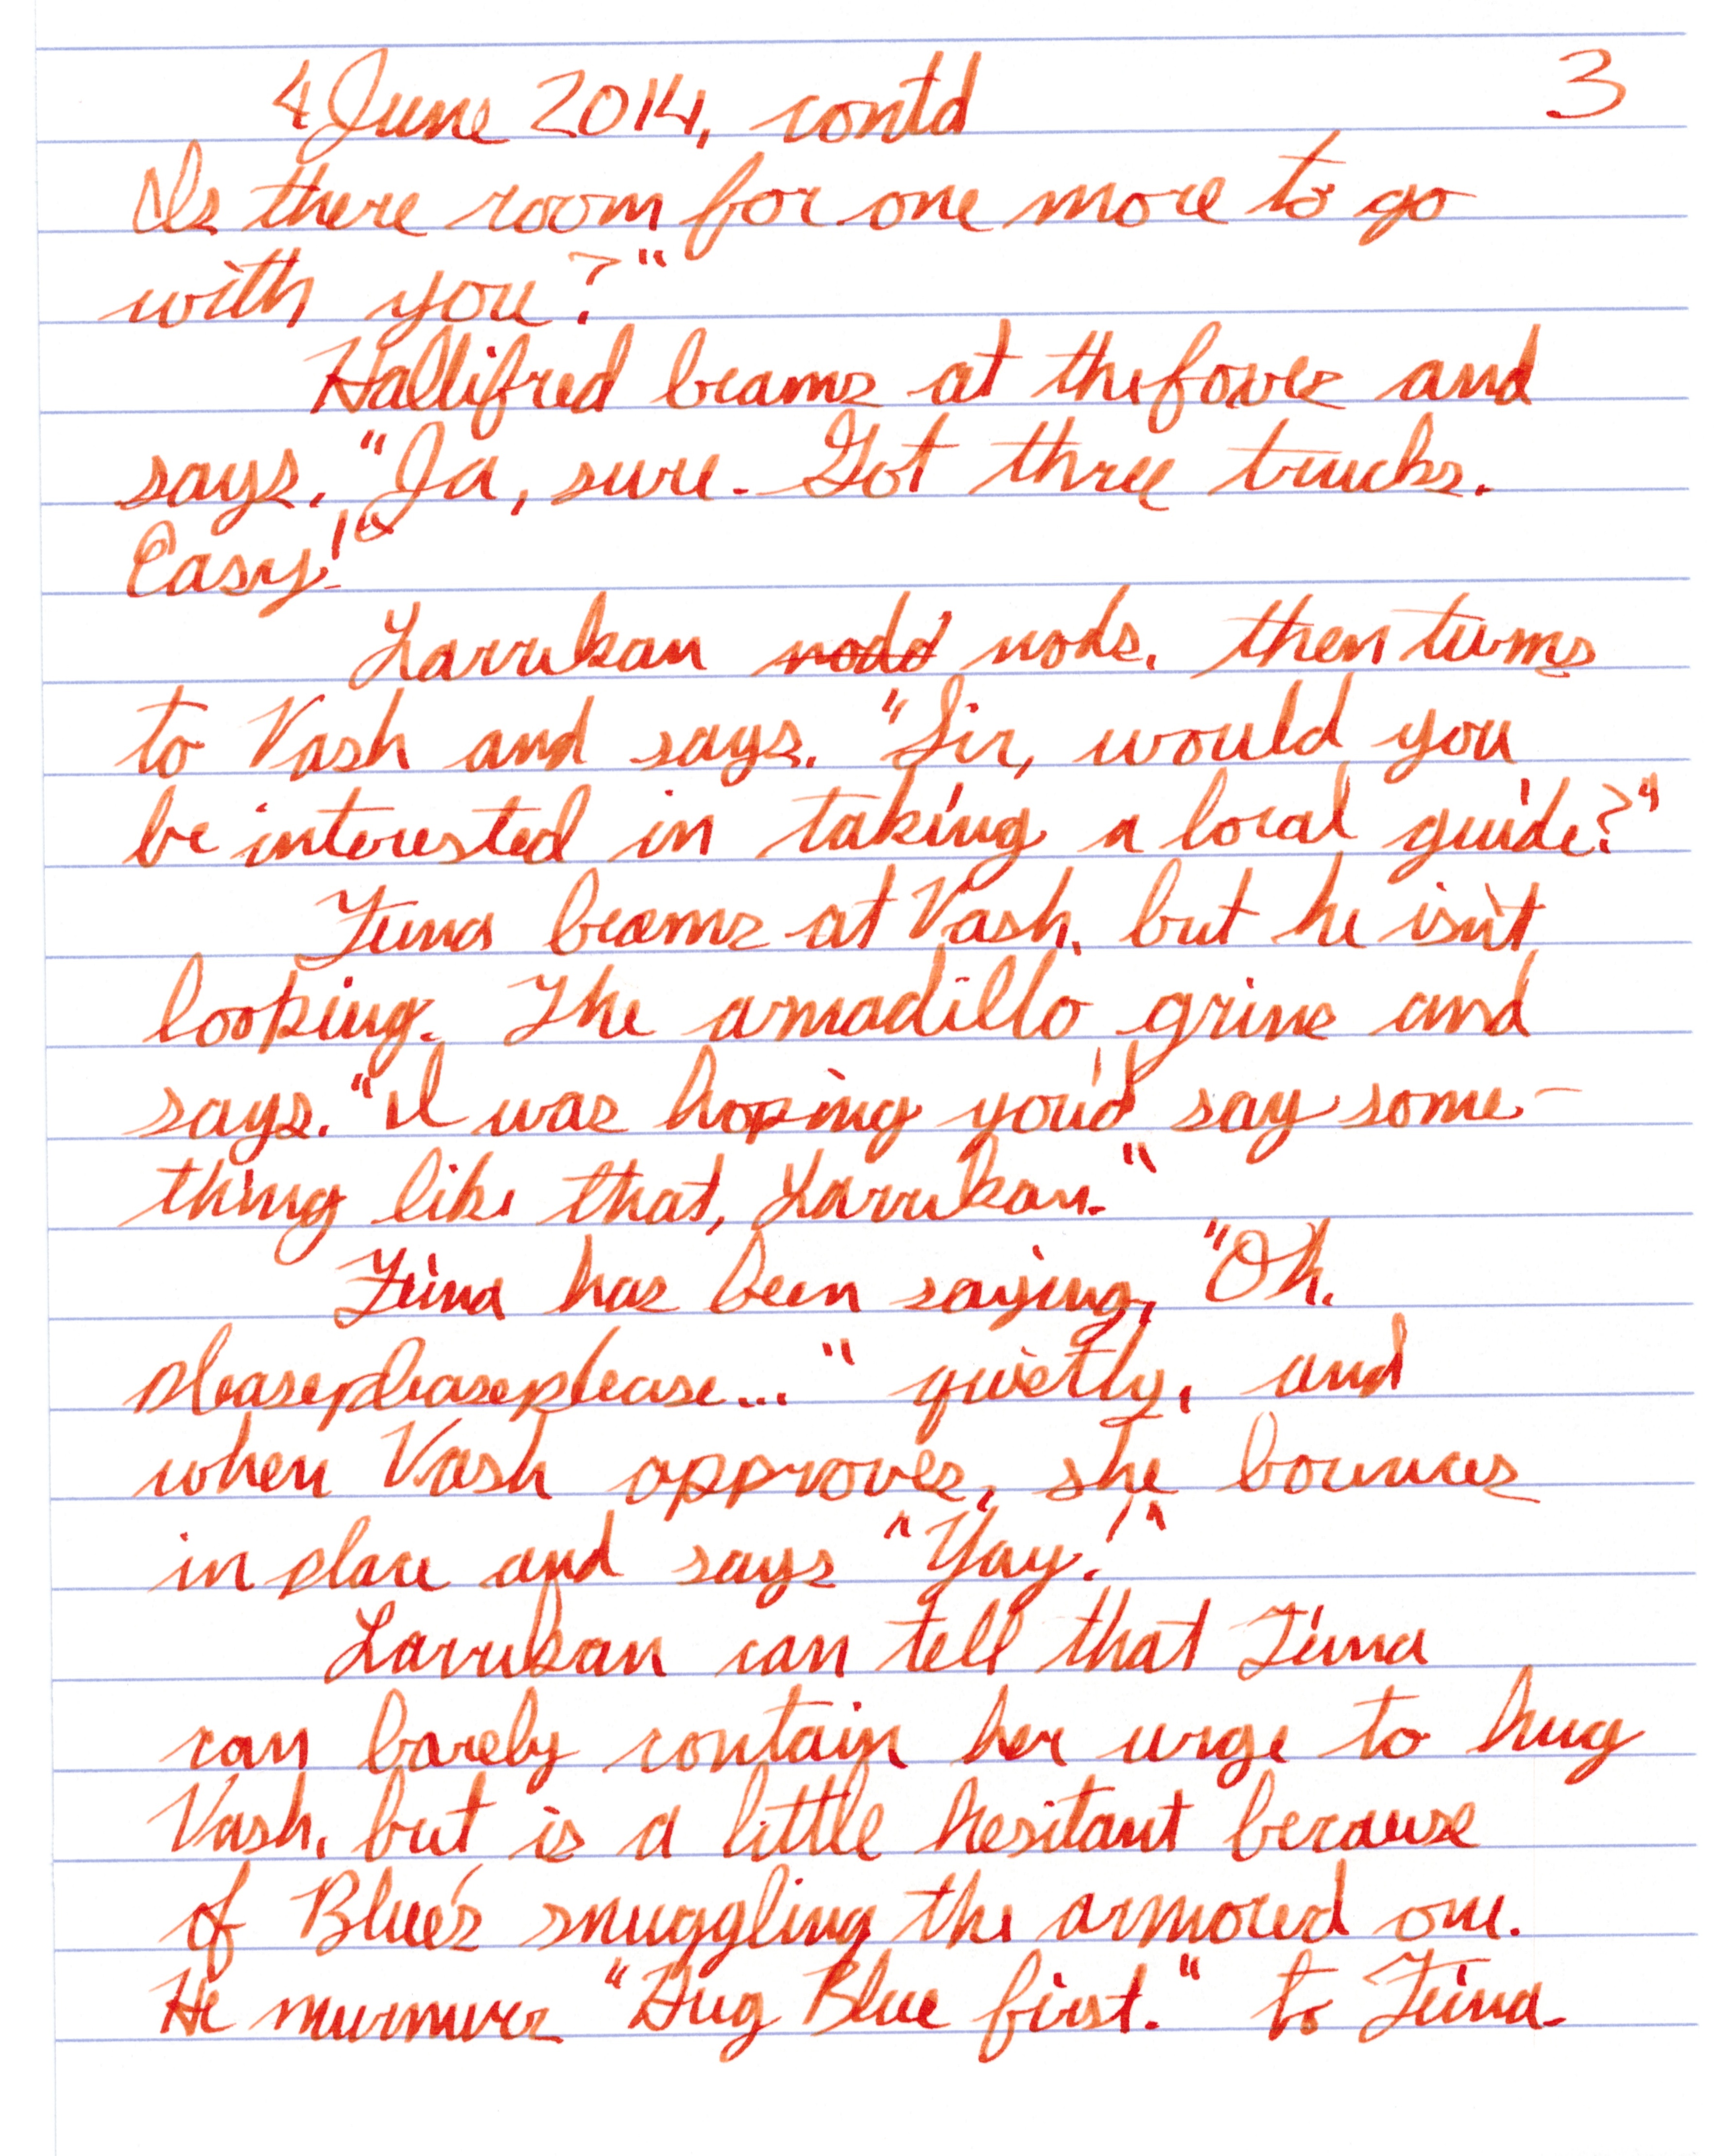 4 June 2014, contd 3
Is there room for one more to go
with you?"
Hallifred beams at the foxes and
says, "Ja, sure. Got three trucks.
Easy!"
Larrukan nodd nods, then turns
to Vash and says, "Sir, would you
be interested in taking a local guide?"
Teina beams at Vash, but he isn't
looking. The armadillo grins and
says, "I was hoping you'd say some-
thing like that, Larrukan."
Teina has been saying, "Oh,
pleasepleaseplease..." quietly, and
when Vash approves, she bounces
in place and says "Yay!"
Larrukan can tell that Teina
can barely contain her urge to hug
Vash, but is a little hesitant because
of Blue's snuggling the armored one.
He murmurs "Hug Blue first." to Teina.